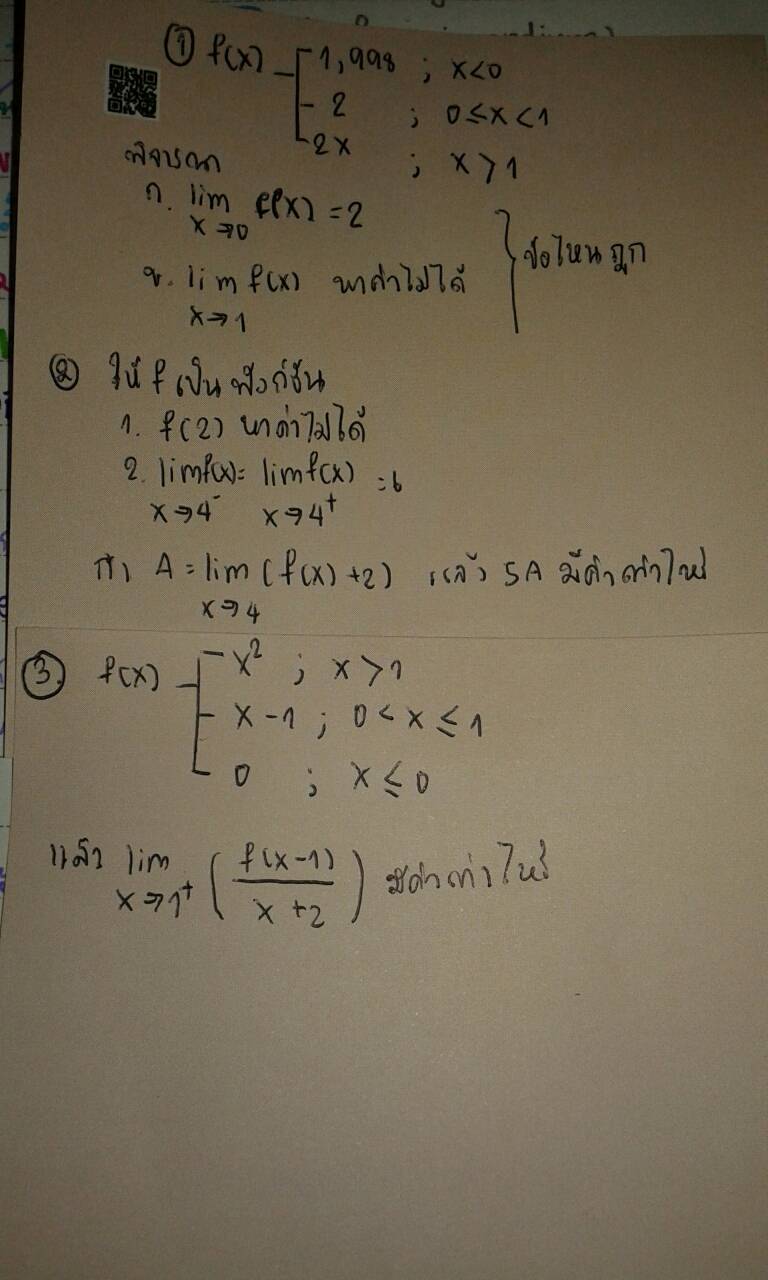 ① f(x) 1,998 ; x<0
2 ; 0≤x<1
2x ; x>1
พิจารณา
ก. lim f(x) = 2
x→0
ข. lim f(x) หาค่าไม่ได้
x→1
ข้อไหนถูก
② ให้ f เป็นฟังก์ชัน
1. f(2) หาค่าไม่ได้
2. limf(x)= limf(x) =6
x→4⁻ x→4⁺
ถ้า A = lim (f(x)+2) แล้ว 5A มีค่าเท่าไหร่
x→4
③ f(x) x² ; x>1
x-1 ; 0<x≤1
0 ; x≤0
แล้ว lim (f(x-1)/x+2) มีค่าเท่าไหร่
x→1⁺